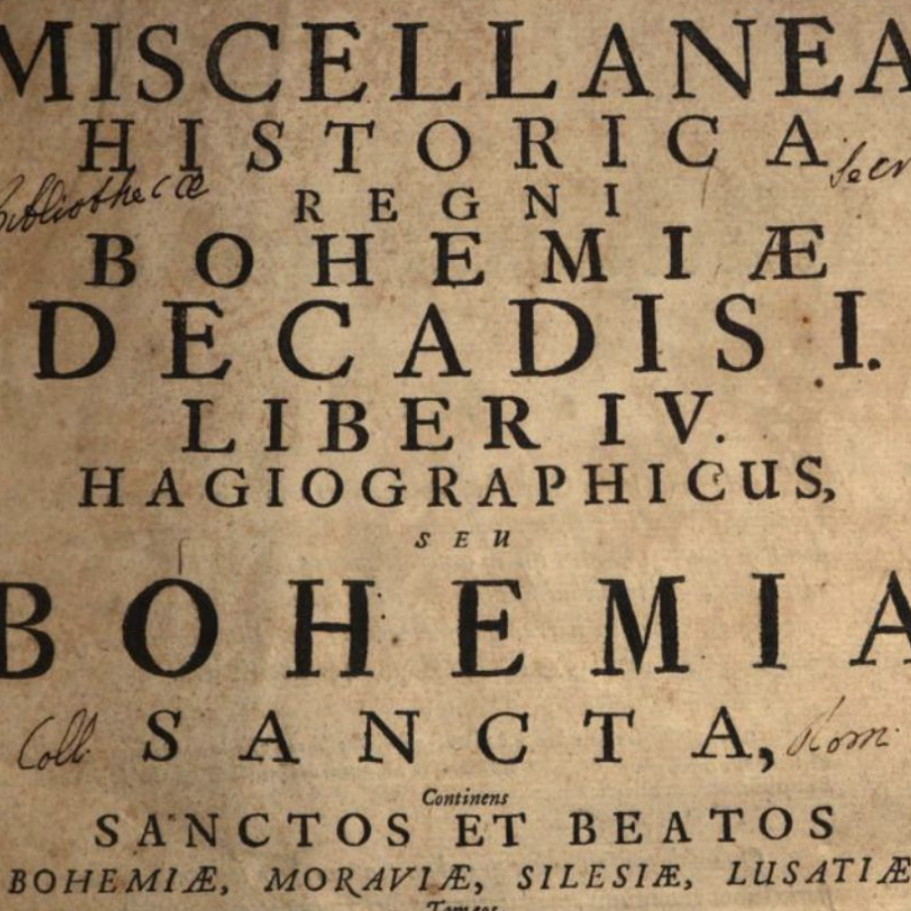 MISCELLANEA
HISTORICA
Bibliothecæ
REGNI
BOHEMIÆ
DECADIS I.
LIBER IV.
HAGIOGRAPHICUS,
SEU
BOHEMIA
Coll. SANCTA, Rom.
Continens
SANCTOS ET BEATOS
BOHEMIÆ, MORAVIÆ, SILESIÆ, LUSATIÆ